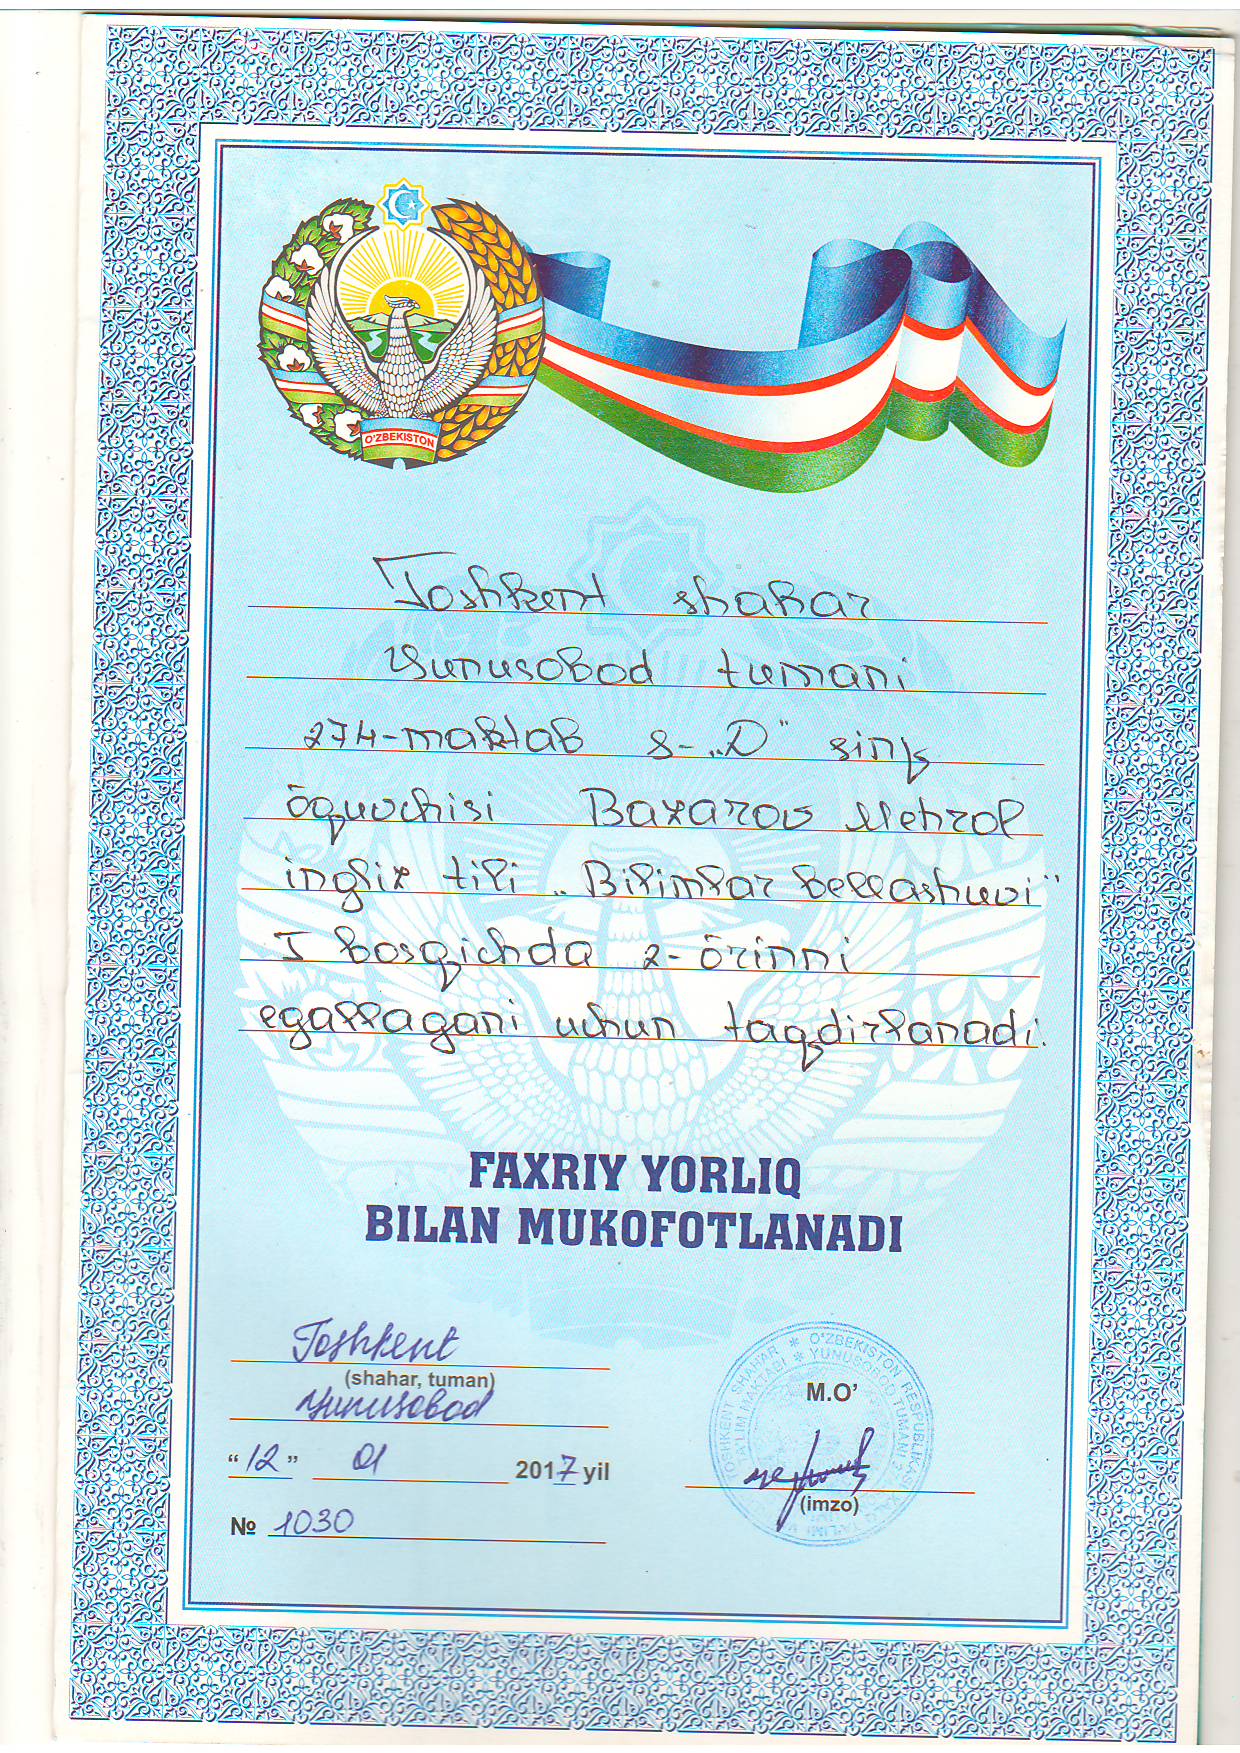 O'ZBEKISTON
Toshkent shahar
Yunusobod tumani
274-maktab 8-„D" sinf
õquvchisi Bazarov Mehrob
ingliz tili „Bilimlar bellashuvi"
I bosqichda 2-õrinni
egallagani uchun taqdirlanadi.
FAXRIY YORLIQ
BILAN MUKOFOTLANADI
Toshkent
(shahar, tuman)
Yunusobod
“12” 01 2017 yil
№ 1030
M.O’
(imzo)
TOSHKENT SHAHAR ✻ O‘ZBEKISTON RESPUBLIKASI
TA’LIM MAKTABI ✻ YUNUSOBOD TUMANI